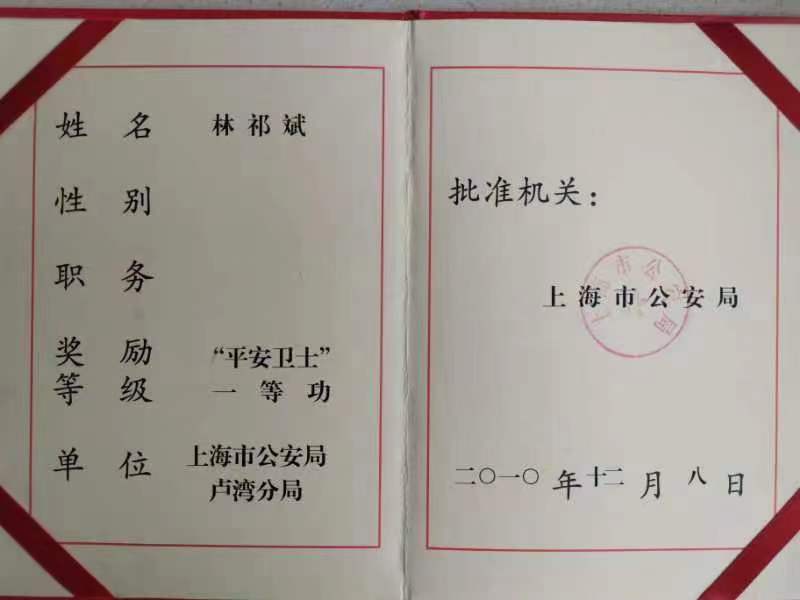 姓名 林祁斌
性别
职务
奖励 “平安卫士”
等级 一等功
单位 上海市公安局
卢湾分局
批准机关：
上海市公安局
上海市公安局
二〇一〇年十二月八日